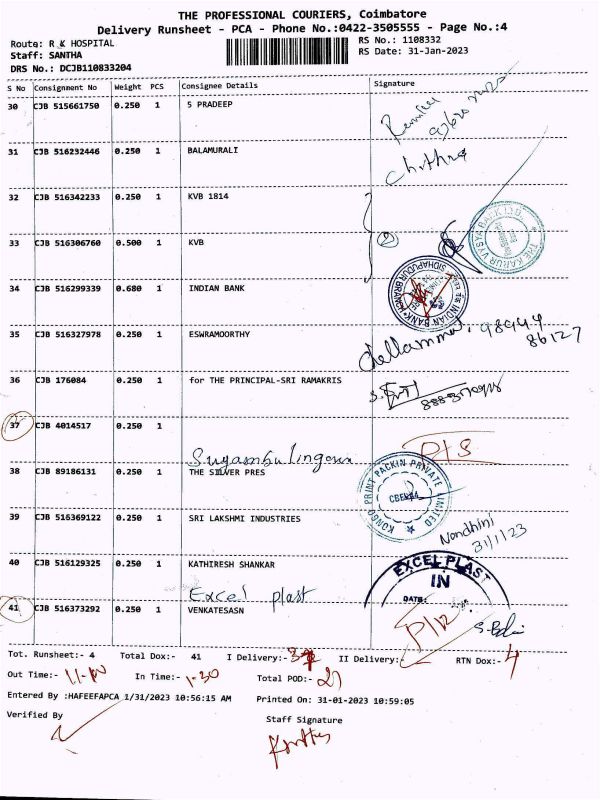 THE PROFESSIONAL COURIERS, Coimbatore
Delivery Runsheet - PCA - Phone No.:0422-3505555 - Page No.:4
Route: R K HOSPITAL
RS No.: 1108332
Staff: SANTHA
RS Date: 31-Jan-2023
DRS No.: DCJB110833204
S No Consignment No Weight PCS Consignee Details Signature
30 CJB 515661750 0.250 1 S PRADEEP
31 CJB 516232446 0.250 1 BALAMURALI
Chithra
32 CJB 516342233 0.250 1 KVB 1814
THE KARUR VYSYA BANK LTD.
33 CJB 516306760 0.500 1 KVB
2
34 CJB 516299339 0.680 1 INDIAN BANK
INDIAN BANK SIDHAPUDUR BRANCH
35 CJB 516327978 0.250 1 ESWRAMOORTHY
Chellammal. 98944
86127
36 CJB 176084 0.250 1 for THE PRINCIPAL-SRI RAMAKRIS
37 CJB 4014517 0.250 1
Suyambulingam
38 CJB 89186131 0.250 1 THE SILVER PRES
KONGO PRINT PACKIN PRIVATE LIMITED
39 CJB 516369122 0.250 1 SRI LAKSHMI INDUSTRIES
Nandhini
31/1/23
40 CJB 516129325 0.250 1 KATHIRESH SHANKAR
EXCEL PLAST
IN
DATE:
Excel plast
41 CJB 516373292 0.250 1 VENKATESASN
Tot. Runsheet:- 4 Total Dox:- 41 I Delivery:- 37 II Delivery:- RTN Dox:- 4
Out Time:- 11-00 In Time:- 1-30 Total POD:- 21
Entered By :HAFEEFAPCA 1/31/2023 10:56:15 AM Printed On: 31-01-2023 10:59:05
Verified By Staff Signature